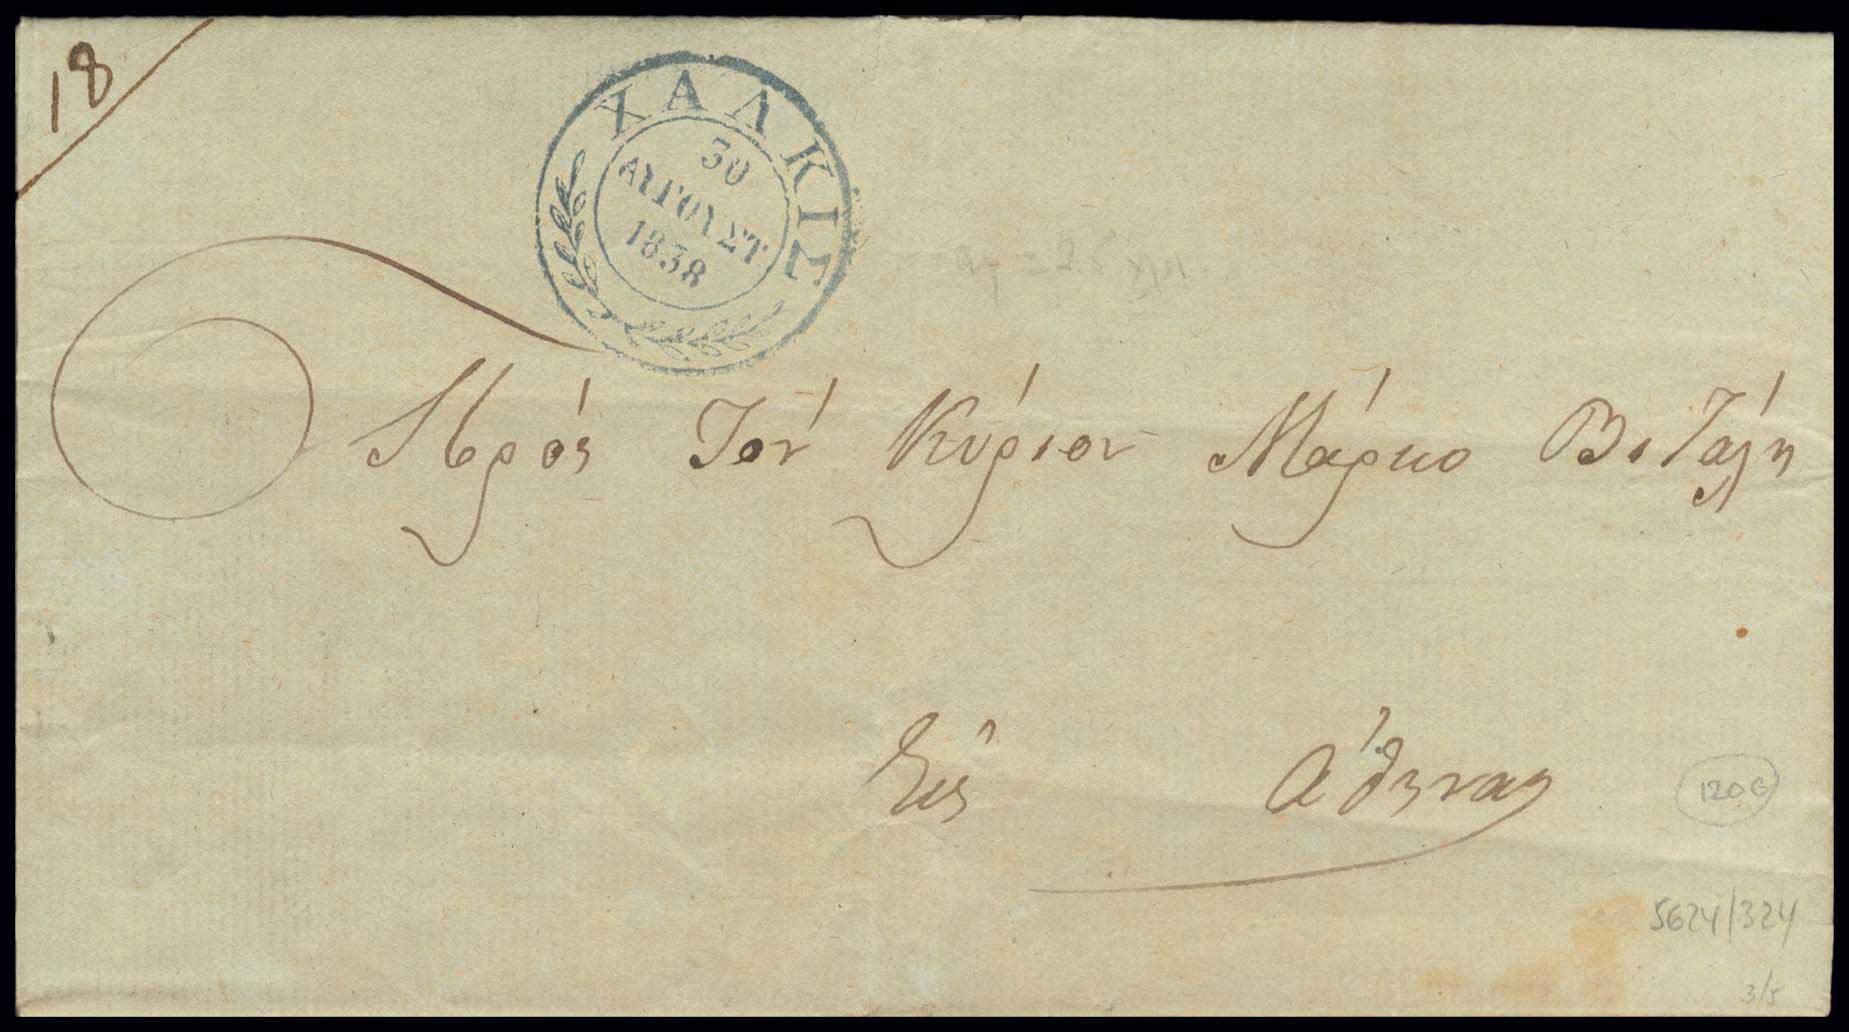 18
ΧΑΛΚΙΣ
30
ΑΥΓΟΥΣΤ
1838
Πρός Τόν Κύριον Μάρκο Βιτάλη
Εις Αθήνας
120€
5624/324
3/5